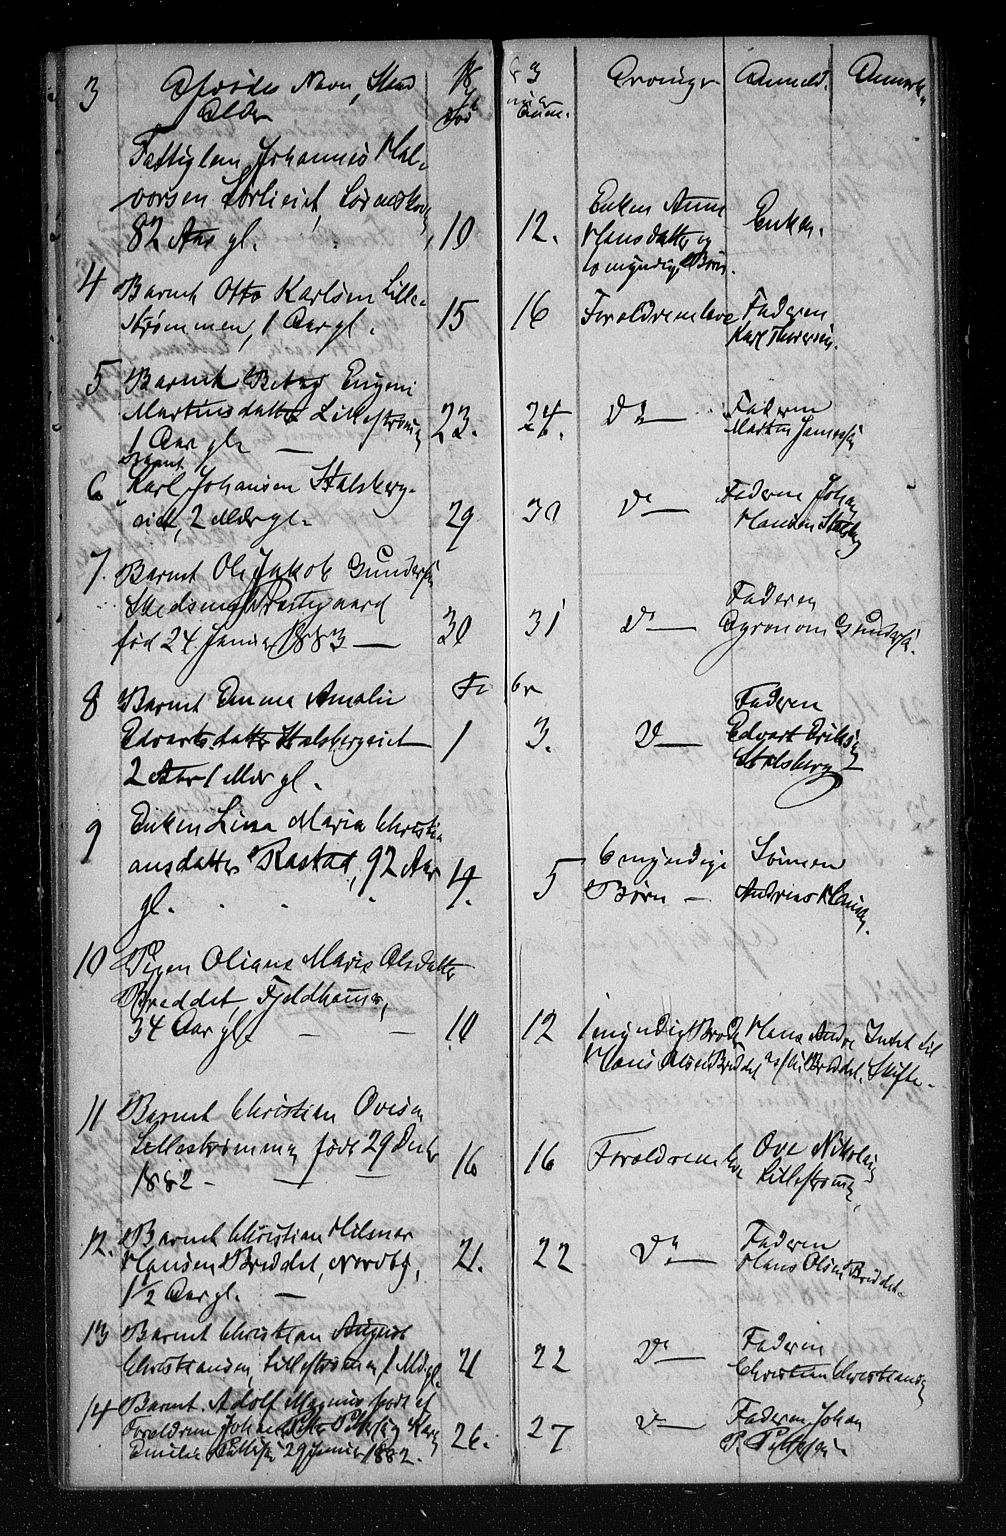 Afdødes Navn, Stand 1883 Arvinge Anmeld. Anmærk.
Alder død Anm.
3 Fattiglem Johannes Hal-
vorsen Lørlieiet, Lørenskog
82 Aar gl. 10 12. Enken Anne Hansdatter og 6 myndige Børn. Enken.
4 Barnet Otto Karlsen Lille-
strømmen, 1 Aar gl. 15 16 Forældrene leve Faderen
Karl Thoresen.
5 Barnet Betzy Eugeni
Martinsdatter Lillestrømm 23. 24. Do Faderen
1 Aar gl. Martin
6 Barnet
Karl Johansen Stalsberg-
eiet, 2 Mdr gl. 29 30 Do Faderen Johan
Hansen Stalsberg
7. Barnet Ole Jakob Gundersen
Skedsmo Præstegaard
fød 24 Januar 1883 30 31 Do Faderen
Agronom Gundersen.
Febr
8 Barnet Emma Amalie
Edvartsdatter Stalsbergeiet 1 3. Do Faderen
2 Aar 1 Mdr gl. Edvart Eriksen
Stalsberg
9 Enken Lina Maria Christi
ansdatter Rastad, 92 Aar
gl. 4. 5 6 myndige
Børn Sønnen
Andreas Hansen.
10 Pigen Oliane Marie Olsdatter
Breddet, Fjeldhammer,
34 Aar gl. 10 12 1 myndig Broder
Hans Olsen Breddet Hans Andr.
Breddet. Intet til
Skifte.
11 Barnet Christian Ovesen
Lillestrømmen født 29 Decbr
1882 16 16 Forældrene leve Ove Nikolaisen
Lillestrømmen
12. Barnet Christian Hilmar
Hansen Breddet, Nordby,
1½ Aar gl. 21. 22 Do Faderen
Hans Olsen Breddet.
13 Barnet Christian August
Christiansen, Lillestrømmen, 1 Md gl. 21 22 Do Faderen
Christian Christiansen
14 Barnet Adolf Magnus født af
Forældrene Johan Petter Pettersen og Karen
Emilie Pettersen 29 Januar 1882. 26. 27 Do Faderen Johan
P. Pettersen.